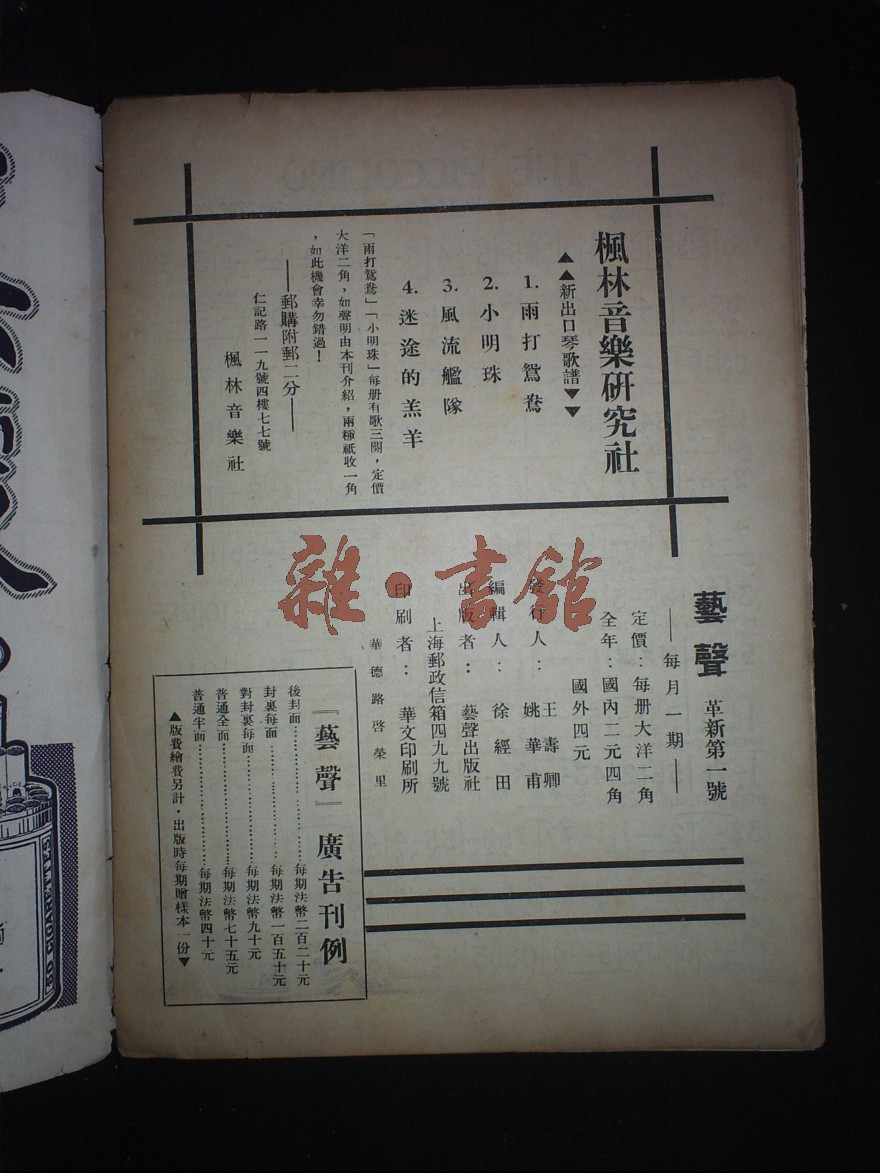 楓林音樂研究社
▲▲新出口琴歌譜▼▼
1. 雨打鴛鴦
2. 小明珠
3. 風流艦隊
4. 迷途的羔羊
「雨打鴛鴦」「小明珠」每册有歌三闋，定價
大洋二角，如聲明由本刊介紹，兩種祇收一角
，如此機會幸勿錯過！
——郵購附郵二分——
仁記路一一九號四樓七七號
楓林音樂社
藝聲 革新第一號
——每月一期——
定價：每册大洋二角
全年：國內二元四角
國外四元
發行人：王壽卿
姚華甫
編輯人：徐經田
出版者：藝聲出版社
上海郵政信箱四九九號
印刷者：華文印刷所
華德路啓榮里
『藝聲』廣告刊例
後封面…………每期法幣二百二十元
封裏每面…………每期法幣一百五十元
對封裏每面…………每期法幣九十元
普通全面…………每期法幣七十五元
普通半面…………每期法幣四十元
▲版費繪費另計・出版時每期贈樣本一份▼
雜・書館
THE PICCOLINO
50 CIGARETTES